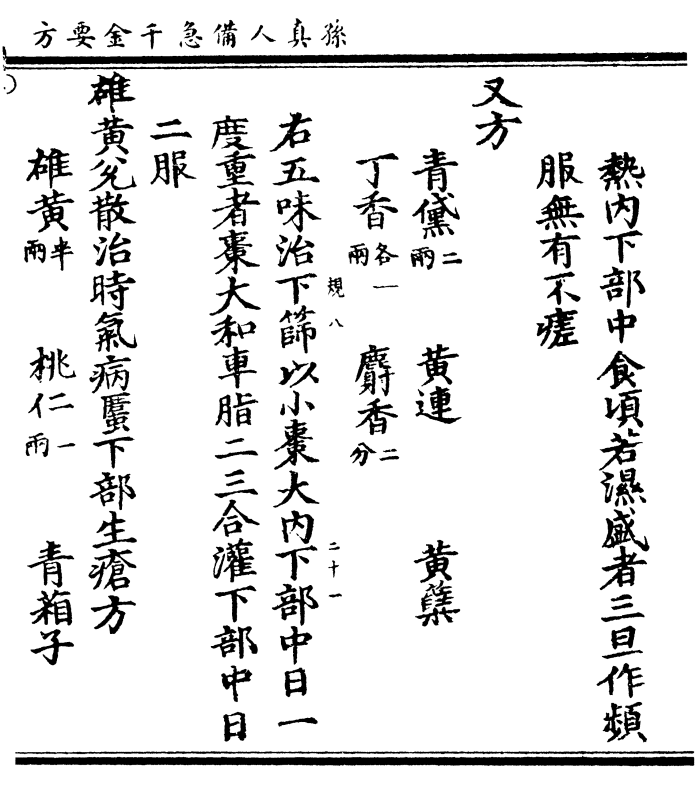 孫真人備急千金要方
熱內下部中食頃若濕盛者三旦作頻
服無有不瘥
又方
青黛二兩 黃連 黃蘗
丁香各一兩 麝香二分
規八 二十一
右五味治下篩以小棗大內下部中日一
度重者棗大和車脂二三合灌下部中日
二服
雄黃兌散治時氣病䘌下部生瘡方
雄黃半兩 桃仁一兩 青葙子